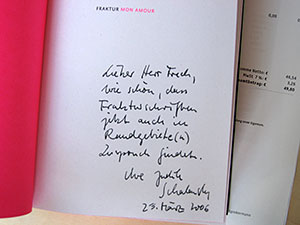 FRAKTUR MON AMOUR
Lieber Herr Frech,
wie schön, dass
Frakturschriften
jetzt auch in
Randgebiete(n)
Zuspruch finden.
Ihre Judith
Schalansky
23. März 2006
46,54
3,26
49,80